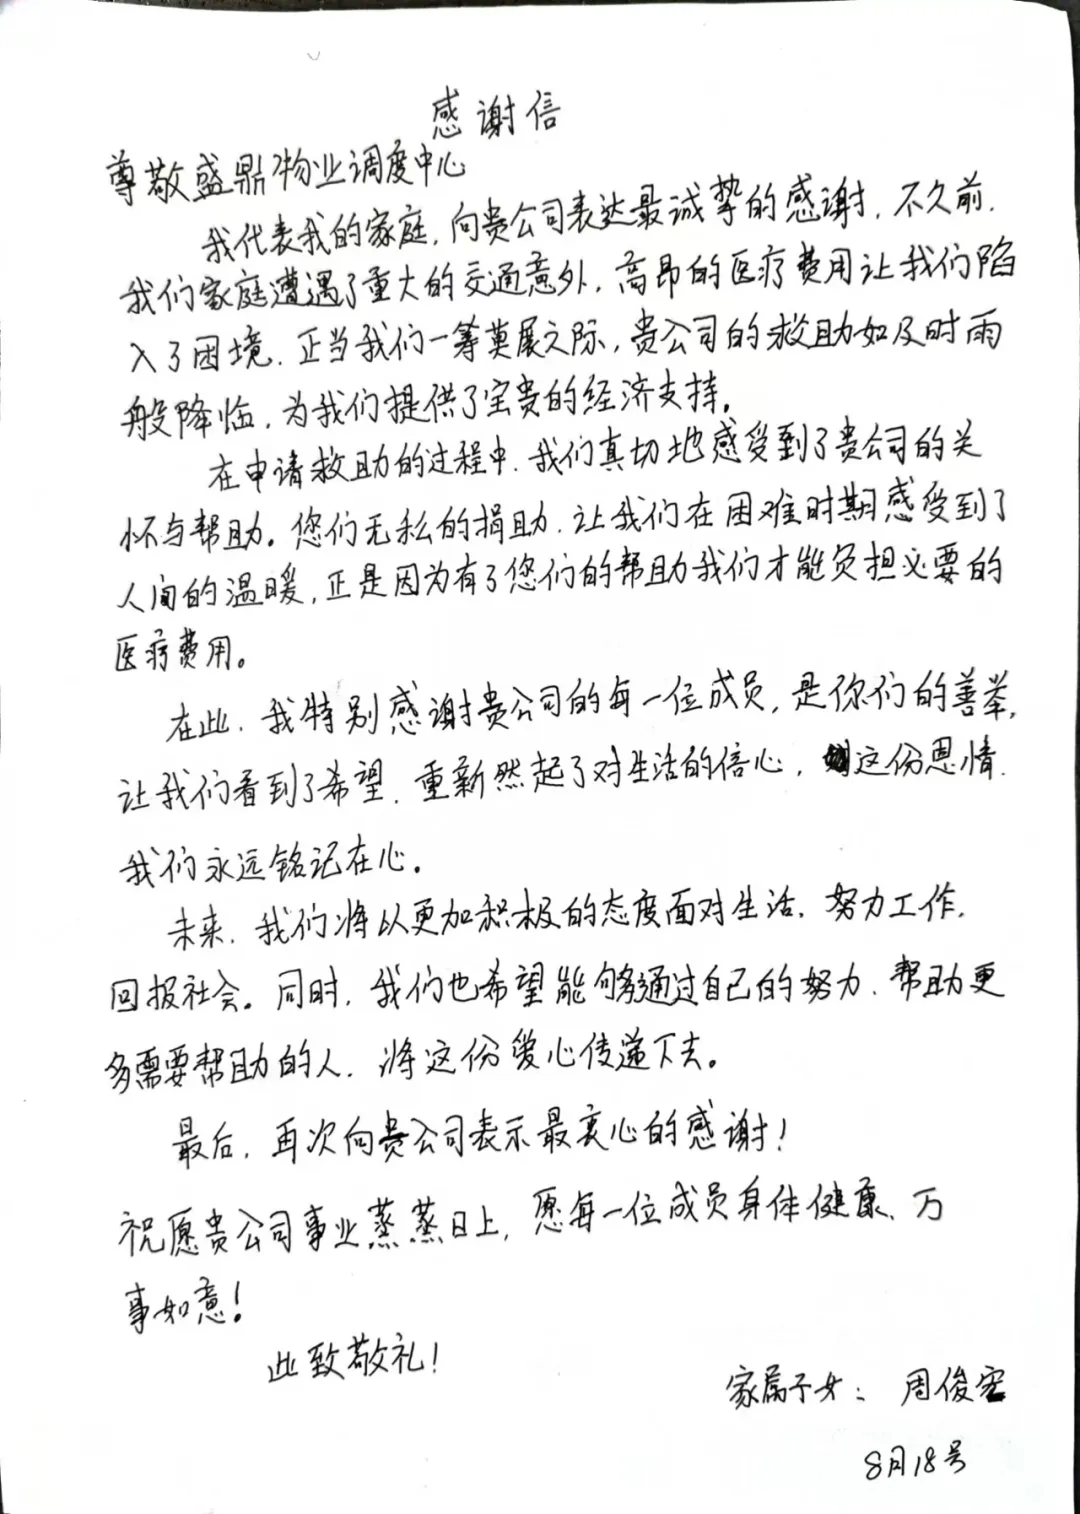 感谢信
尊敬盛鼎物业调度中心
我代表我的家庭,向贵公司表达最诚挚的感谢,不久前,
我们家庭遭遇了重大的交通意外,高昂的医疗费用让我们陷
入了困境,正当我们一筹莫展之际,贵公司的救助如及时雨
般降临,为我们提供了宝贵的经济支持。
在申请救助的过程中,我们真切地感受到了贵公司的关
怀与帮助。您们无私的捐助,让我们在困难时期感受到了
人间的温暖,正是因为有了您们的帮助我们才能负担必要的
医疗费用。
在此,我特别感谢贵公司的每一位成员,是你们的善举,
让我们看到了希望,重新然起了对生活的信心,这份恩情,
我们永远铭记在心。
未来,我们将以更加积极的态度面对生活,努力工作,
回报社会。同时,我们也希望能够通过自己的努力,帮助更
多需要帮助的人,将这份爱心传递下去。
最后,再次向贵公司表示最衷心的感谢!
祝愿贵公司事业蒸蒸日上,愿每一位成员身体健康、万
事如意!
此致敬礼!
家属子女:周俊宏
8月18号